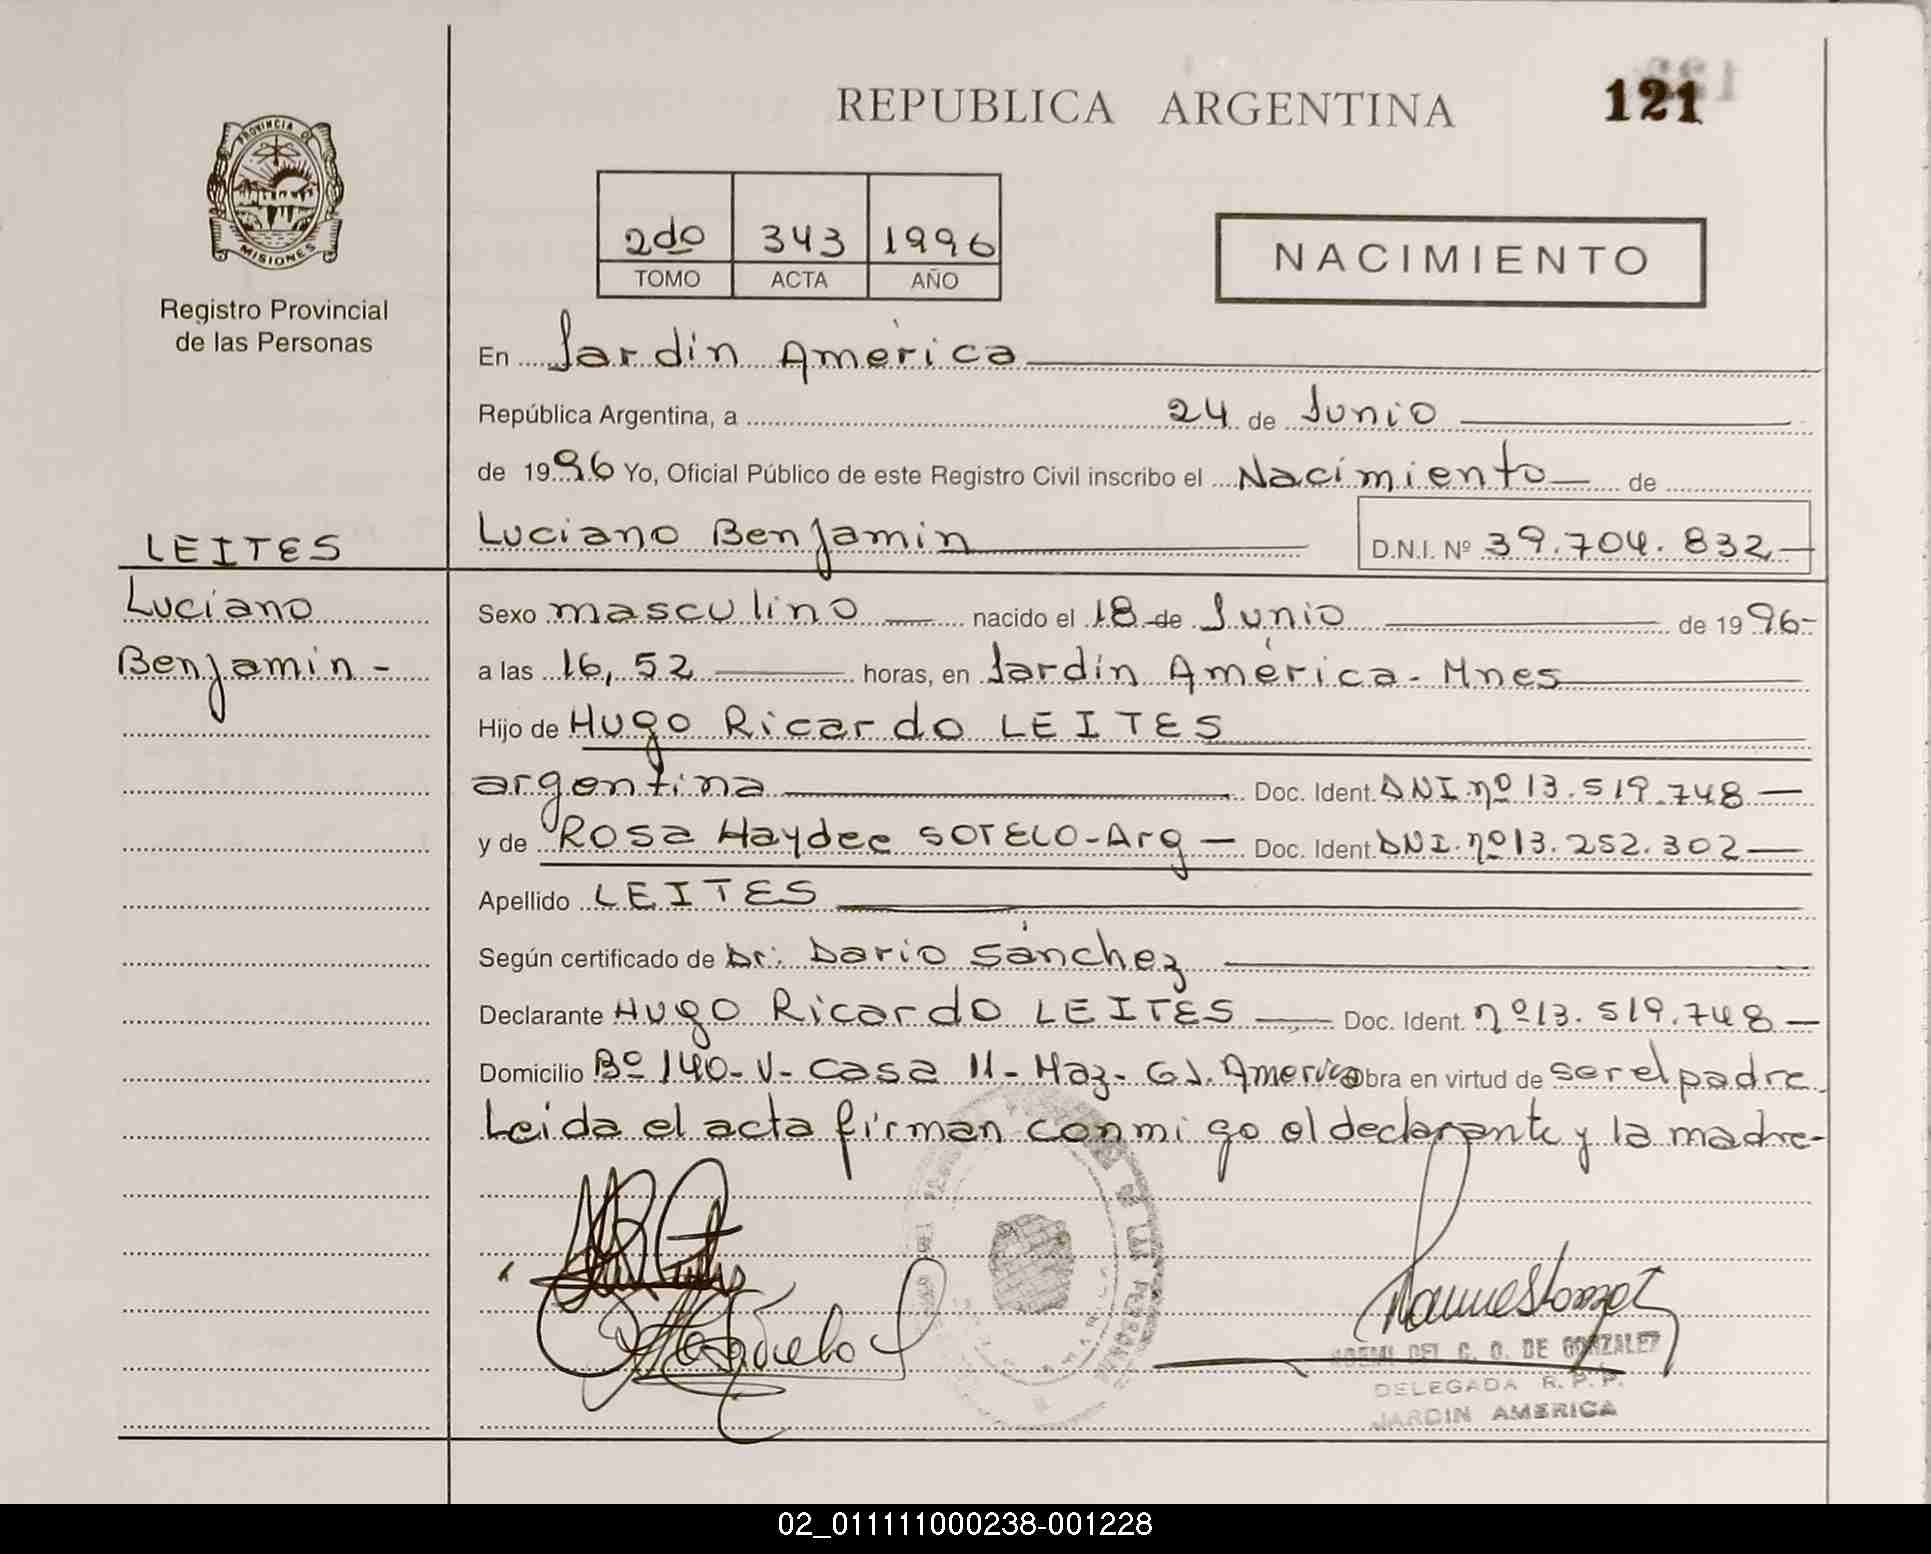 REPUBLICA ARGENTINA
121
PROVINCIA DE
MISIONES
Registro Provincial
de las Personas
2do 343 1996
TOMO ACTA AÑO
NACIMIENTO
En Jardín América
República Argentina, a 24 de Junio
de 1996 Yo, Oficial Público de este Registro Civil inscribo el Nacimiento de
Luciano Benjamin D.N.I. Nº 39.704.832
LEITES
Luciano
Benjamin -
Sexo masculino nacido el 18 de Junio de 1996-
a las 16,52 horas, en Jardín América - Mnes
Hijo de Hugo Ricardo LEITES
argentina Doc. Ident. DNI nº 13.519.748
y de Rosa Haydee SOTELO - Arg - Doc. Ident. DNI. nº 13.252.302
Apellido LEITES
Según certificado de Dr: Dario Sánchez
Declarante Hugo Ricardo LEITES Doc. Ident. nº 13.519.748
Domicilio Bº 140 - V - casa 11 - Maz - G J. America obra en virtud de ser el padre
Leida el acta firman conmigo el declarante y la madre -
DE LAS PERSONAS
NOEMI DEL C. O. DE GONZALEZ
DELEGADA R.P.P.
JARDIN AMERICA
02_011111000238-001228